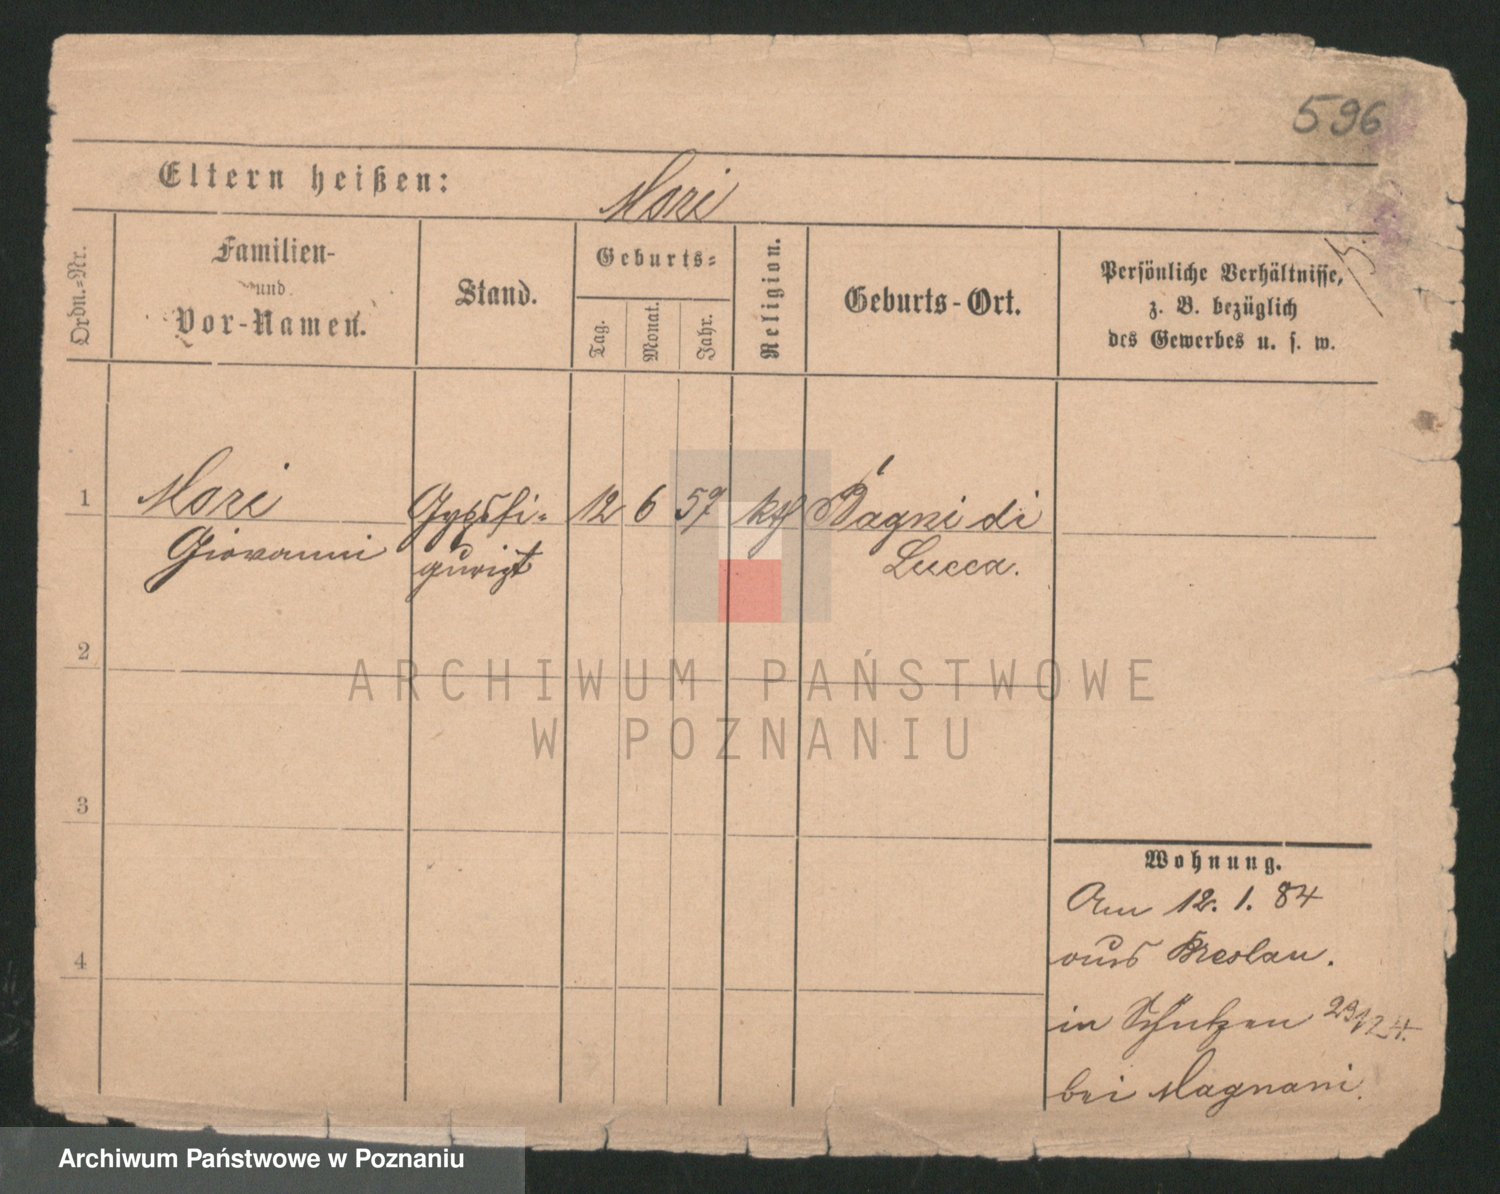 596
Eltern heißen: Mori
Ordn.-Nr.
Familien-
und
Vor-Namen.
Stand.
Geburts-
Tag.
Monat.
Jahr.
Religion.
Geburts-Ort.
Persönliche Verhältnisse,
z. B. bezüglich
des Gewerbes u. s. w.
1 Mori Gypsfi- 12 6 57 kth Bagni di
Giovanni gurist Lucca.
2
3
4
Wohnung.
Am 12. 1. 84
aus Breslau.
in Schützen
bei Magnani.
ARCHIWUM PAŃSTWOWE
W POZNANIU
Archiwum Państwowe w Poznaniu